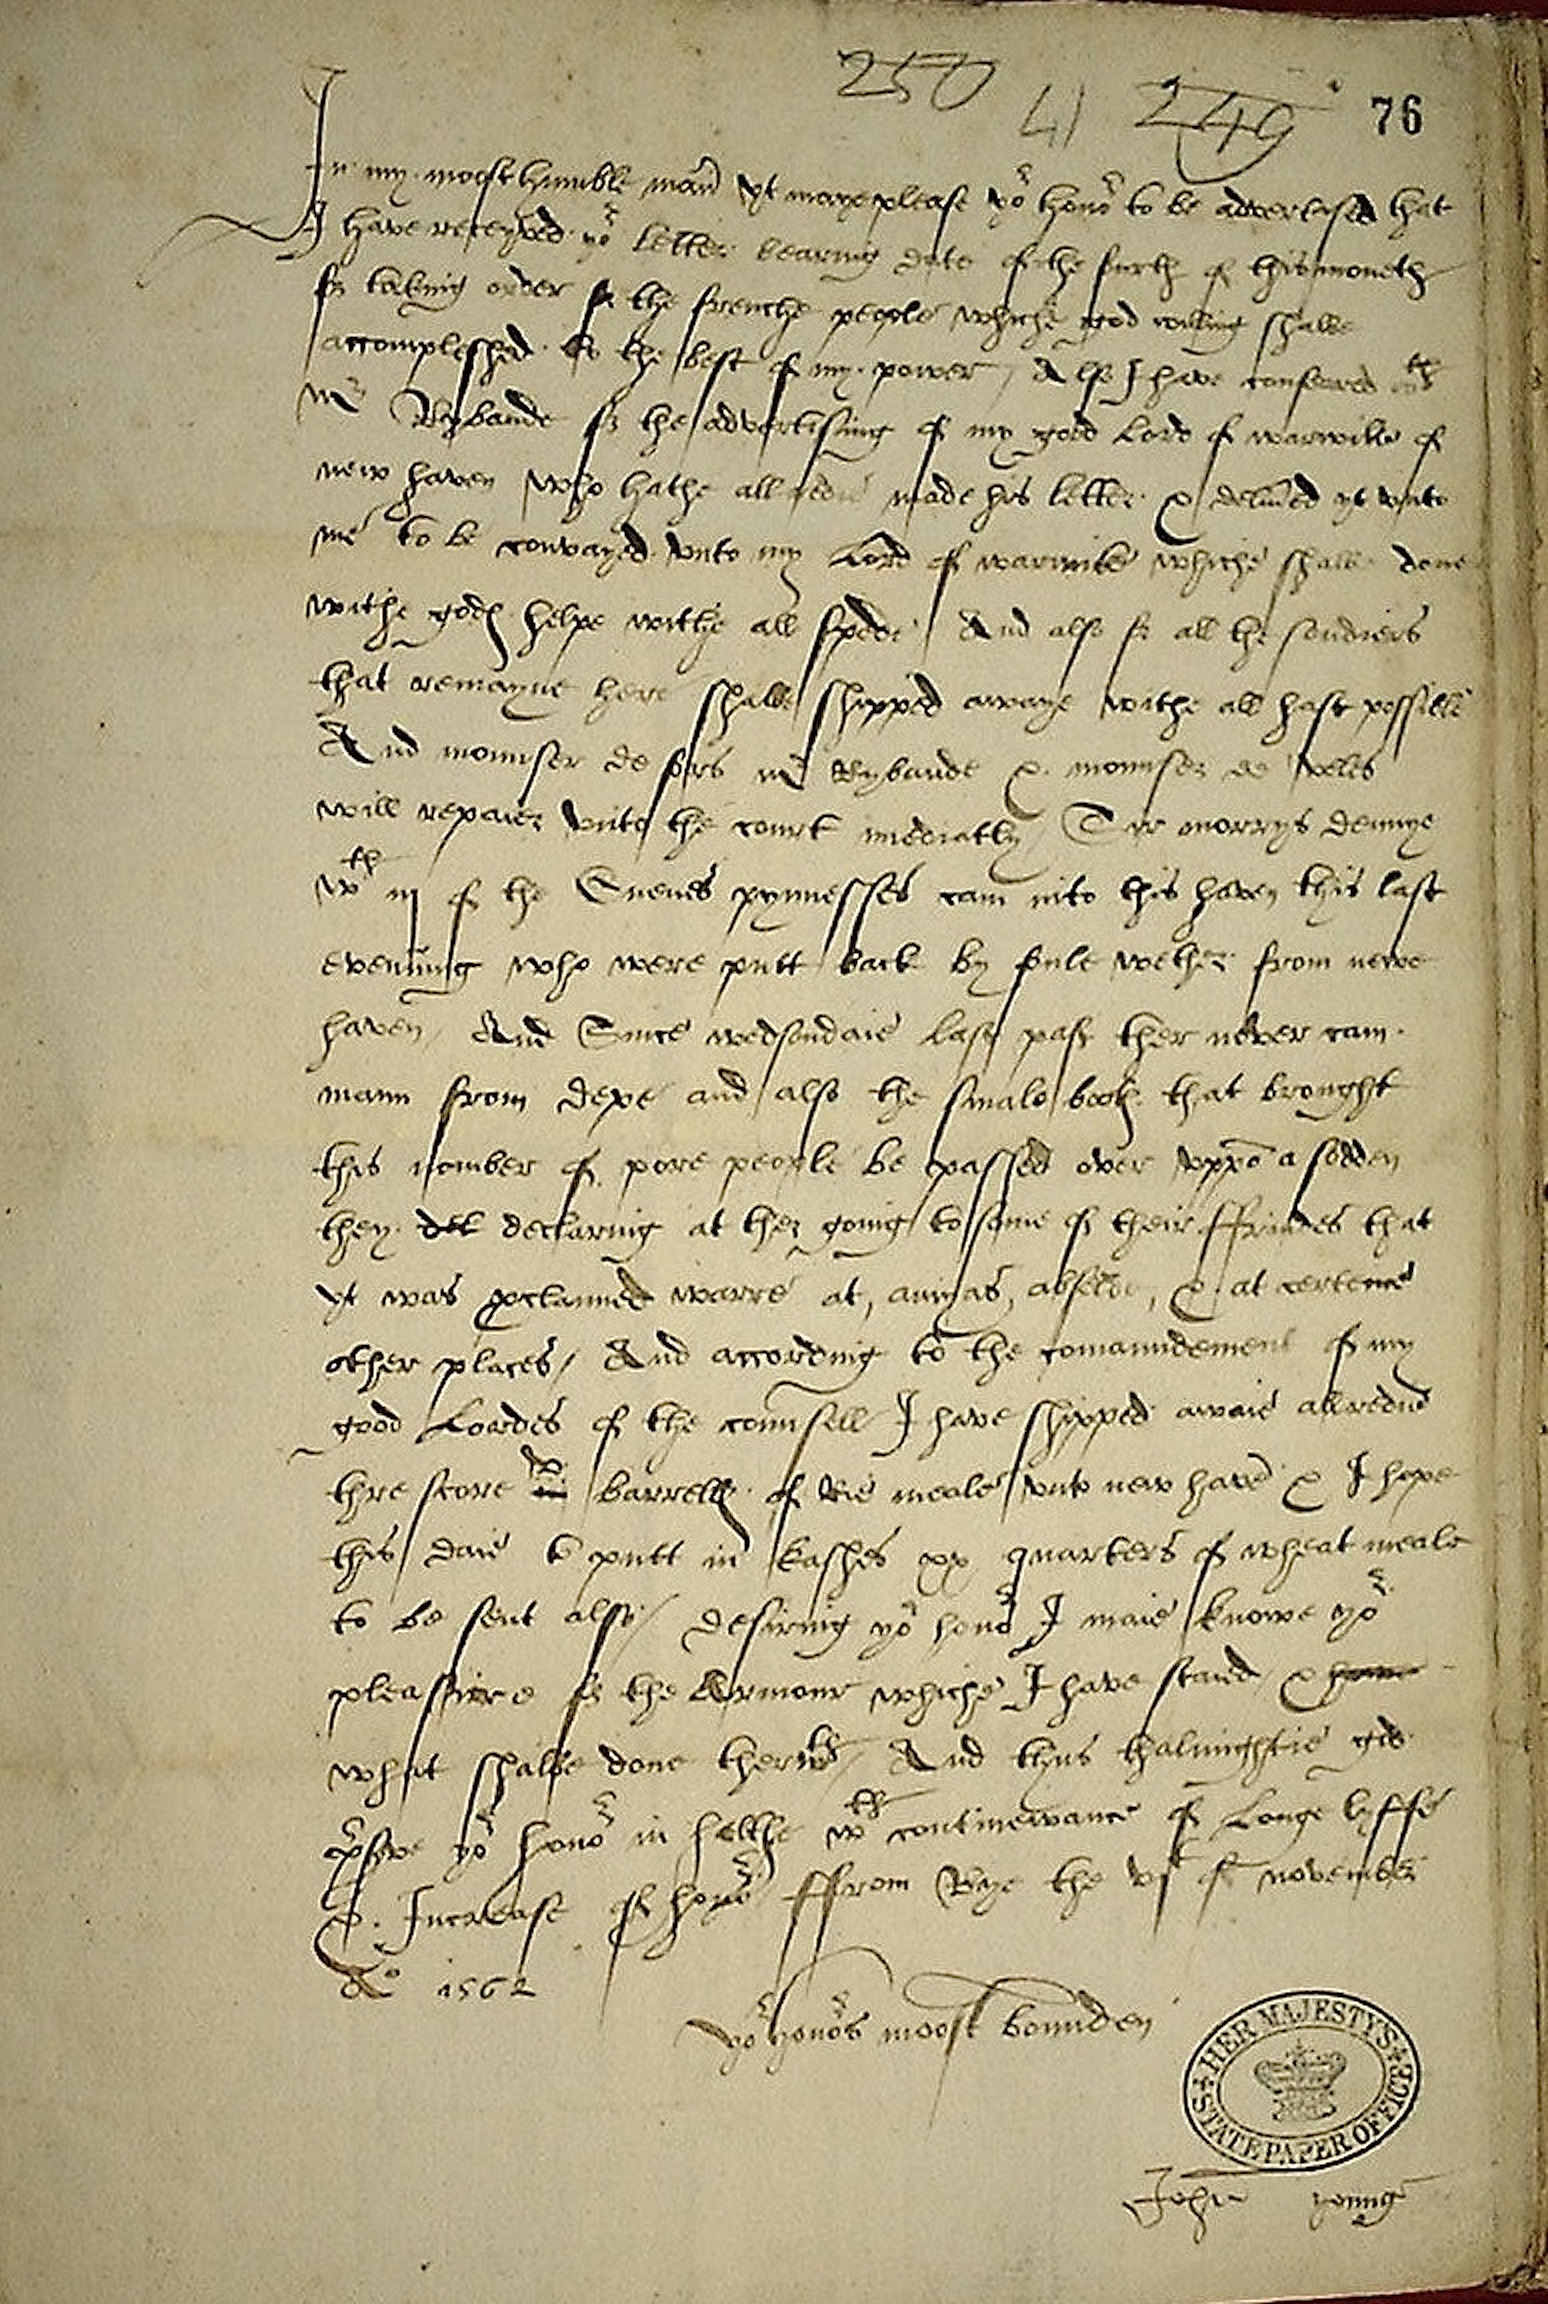 250 41 249 76
In my moost humble man̄ yt maye please yor honor to be advertased that
I have receyved yor letter bearing date of the furth of this moneth
for taking order for the frenche people whiche god willing shalbe
accompleshed to the best of my power / Also I have conferred wth
mr Rybaude for the advertising of my good Lord of warwike of
new haven who hathe all redie made his letter & delived yt vnto
me to be convayed vnto my Lord of warwike whiche shalbe done
withe gods helpe withe all spede / And also for all the soudiers
that remayne here shalbe shipped awaye withe all hast possible
And mounser de fors mr Rybaude & mounser de velles
will repaier vnto the court imediatly / Syr morrys dennye
wth iij of the Quenes pynnesses cam into this haven this last
evenning who were putt back by foule wether from newe
haven / And Since wedsondaie last past ther never cam
mann from depe and also the smale bootes that brought
this nomber of pore people be passed over vppō a sodden
they del declaring at ther going to some of their ffrindes that
yt was proclaimed warre at, amyas, , & at certene
other places / And according to the comaundement of my
good Lordes of the counsell I have shipped awaie allredie
thre score barrells of Rie meale vnto new havē & I hope
this daie to putt in kashes xx quarters of wheat meale
to be sent also / desiring yor honor I maie knowe yor
pleassure for the Armour whiche I have staied &
what shalbe done therwth / And thus thalmightie god
pserve yor honor in helthe wth continewance of Longe lyffe
& Increase of honor ffrom Rye the vjt of november
Ao 1562
yor honors moost bounden
HER MAJESTY'S STATE PAPER OFFICE
John yonng